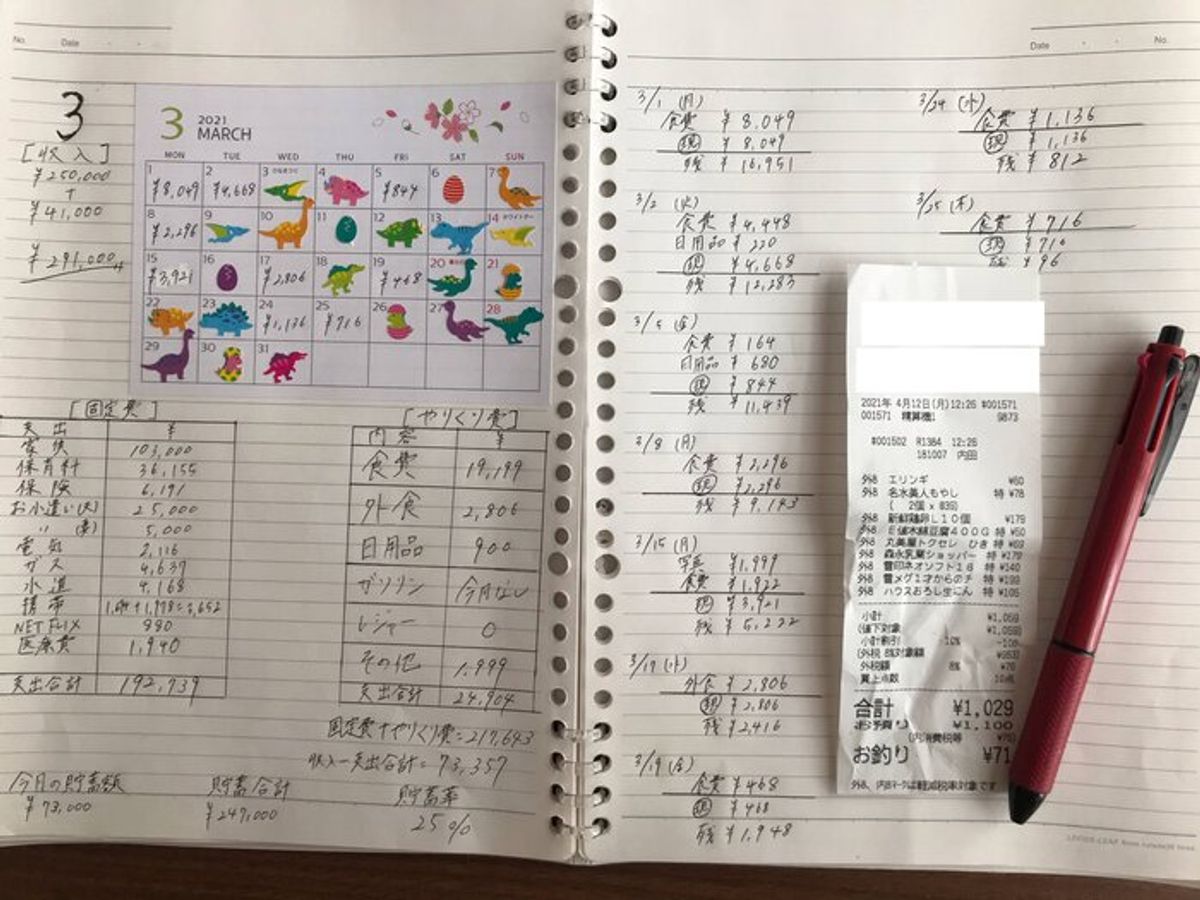 No.
Date
3
[収入]
¥250,000
+
¥41,000
¥291,000
3 2021
MARCH
MON TUE WED THU FRI SAT SUN
1 2 3 4 5 6 7
¥8,049 ¥4,668 ¥844
8 9 10 11 12 13 14
¥2,296
15 16 17 18 19 20 21
¥3,921 ¥2,806 ¥468
22 23 24 25 26 27 28
¥1,136 ¥716
29 30 31
[固定費]
支出 ¥
家賃 103,000
保育料 36,155
保険 6,191
お小遣い(夫) 25,000
〃 (妻) 5,000
電気 2,116
ガス 4,637
水道 4,168
携帯
NETFLIX 990
医療費 1,940
支出合計 192,739
[やりくり費]
内容 ¥
食費 19,199
外食 2,806
日用品 900
ガソリン 今月なし
レジャー 0
その他 1,999
支出合計 24,904
固定費+やりくり費=217,643
収入-支出合計=73,357
今月の貯蓄額 貯蓄合計 貯蓄率
¥73,000 ¥247,000 25%
Date No.
3/1 (月)
食費 ¥8,049
現 ¥8,049
残 ¥16,951
3/2 (火)
食費 ¥4,448
日用品 ¥220
現 ¥4,668
残 ¥12,283
3/5 (金)
食費 ¥164
日用品 ¥680
現 ¥844
残 ¥11,439
3/8 (月)
食費 ¥2,296
現 ¥2,296
残 ¥9,143
3/15 (月)
写真 ¥1,999
食費 ¥1,922
現 ¥3,921
残 ¥5,222
3/17 (水)
外食 ¥2,806
現 ¥2,806
残 ¥2,416
3/19 (金)
食費 ¥468
現 ¥468
残 ¥1,948
3/24 (水)
食費 ¥1,136
現 ¥1,136
残 ¥812
3/25 (木)
食費 ¥716
現 ¥716
残 ¥96
2021年 4月12日(月)12:26 #001571
001571 精算機1 9873
#001502 R1384 12:26
181007 内田
外8 エリンギ ¥60
外8 名水美人もやし 特 ¥78
外8 新鮮鶏卵L10個 ¥179
外8 丸美屋トクセレ ひき 特 ¥69
外8 森永乳業ショッパー 特 ¥179
外8 雪印ネオソフト16 特 ¥140
外8 雪メグ1才からのチ 特 ¥199
外8 ハウスおろし生にん 特 ¥105
小計 ¥1,059
(値下対象 ¥1,059)
小計割引 10% -106
(外税 8%対象額 ¥953)
外税額 8% ¥76
買上点数 10点
合計 ¥1,029
お預り ¥1,100
(内消費税等 ¥76)
お釣り ¥71
外8、内8マークは軽減税率対象です